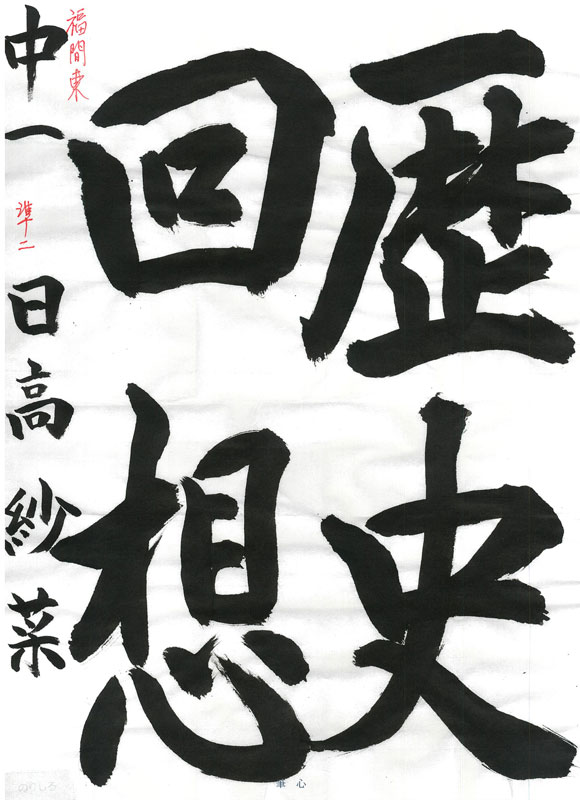 歴史
回想
福間東
中一 準二 日高紗菜
筆心
のりしろ